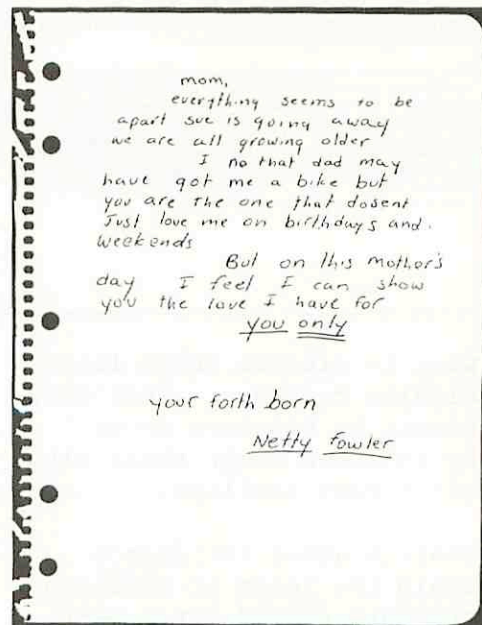 mom,
everything seems to be
apart sue is going away
we are all growing older
I no that dad may
have got me a bike but
you are the one that dosent
Just love me on birthdays and.
weekends
But on this mother's
day I feel I can show
you the love I have for
you only
your forth born
Netty Fowler